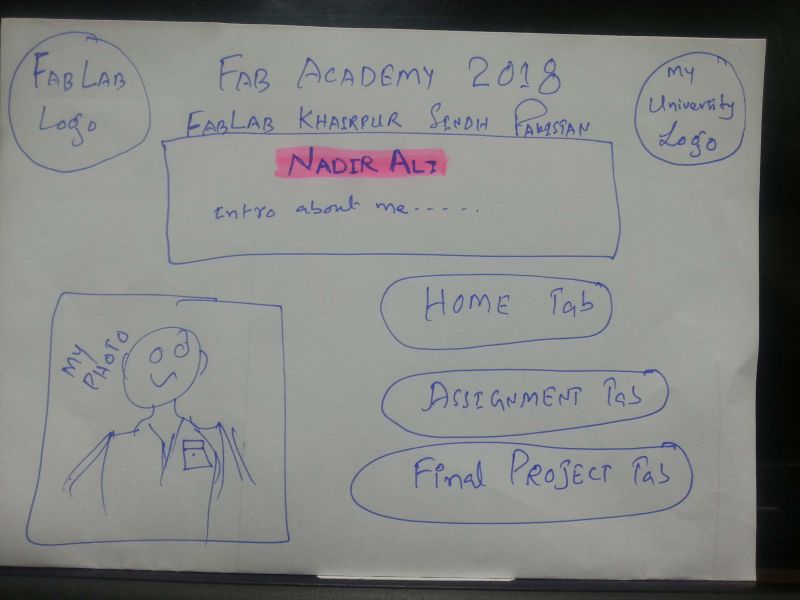 FAB LAB
Logo
FAB ACADEMY 2018
FABLAB KHAIRPUR SINDH PAKISTAN
My
University
Logo
NADIR ALI
intro about me.....
MY
PHOTO
HOME Tab
ASSIGNMENT Tab
Final PROJECT Tab